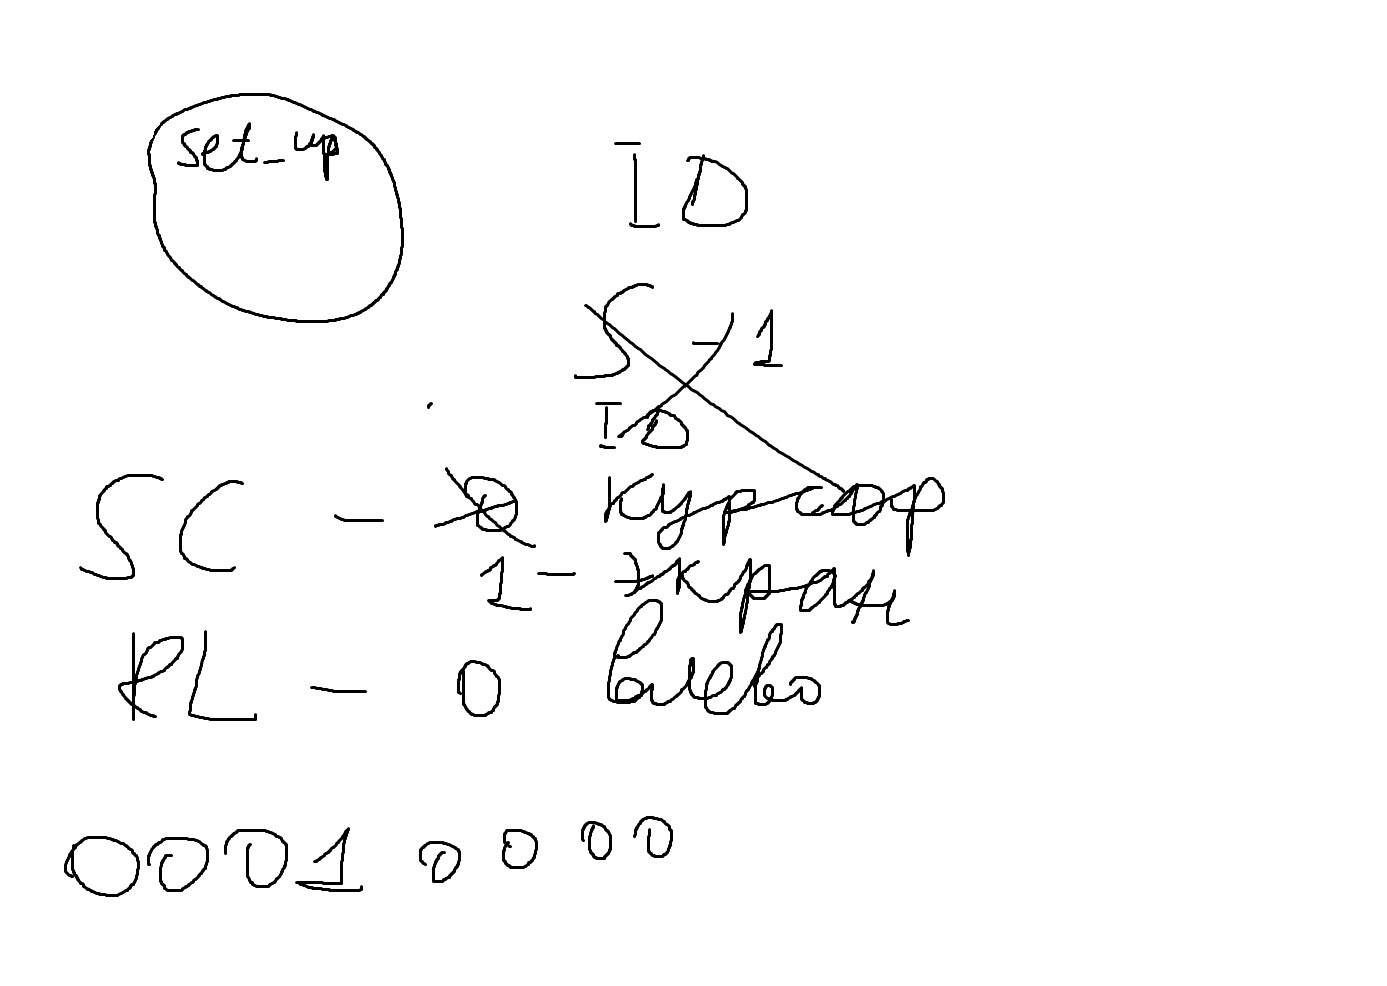 set_up
ID
S - 1
ID
SC - 0 курсор
1 - экран
RL - 0 влево
0001 0000